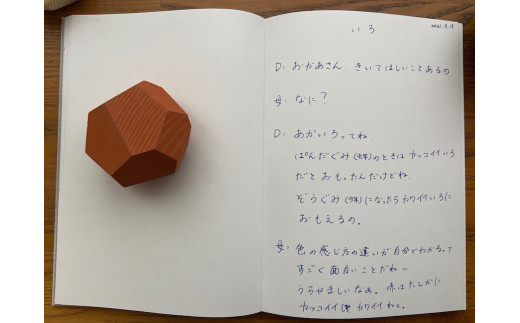 いろ
2021.9.19
D: おかあさん、きいてほしいことあるの
母: なに？
D: あかいろってね、
ぱんだぐみ(去年)のときはカッコイイいろ
だとおもったんだけどね、
ぞうぐみ(今年)になったらカワイイいろに
おもえるの。
母: 色の感じ方の違いが自分でわかるって
すごく面白いことだねー
うらやましいなあ。赤はたしかに
カッコイイしカワイイねと。